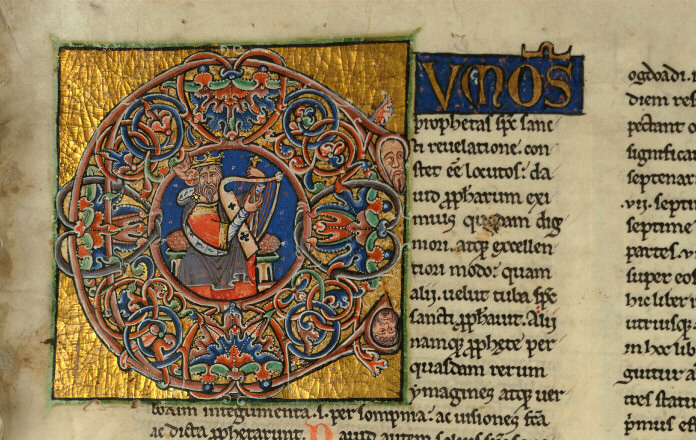 C
VMOS
prophetas sps sanc
ti reuelatione con
stet eē locutos: da
uid pphetarum exi
mius quodam dig
niori. atq; excellen
tiori modo: quam
alii. uelut tuba sps
sancti pphauit. Alii
namq; pphete per
quasdam rerum
ymagines atq; uer
borum integumenta. s. per sompnia. ac uisiones ftā
ac dicta pphetarunt. Dauid autem
ogdoadi.
diem res
pectant o
significa
septenari
.vii. septi
septime
partes.
super eos
hic liber
utriusq;
in hoc lib
guitur a
tres statu
pmus est